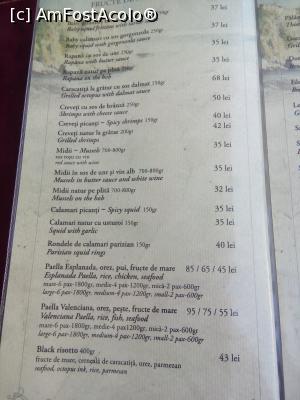 [c] AmFostAcolo®
FRUCTE DE
37 lei
Baby squid with gorgonzola sauce
37 lei
Baby calamari cu sos gorgonzola 250gr
Baby squid with gorgonzola sauce
35 lei
Rapană cu sos de ubi 250gr
Rapana with butter sauce
35 lei
Rapană natur pe plită
Rapana on the hob
35 lei
Caracatiță la grătar cu sos dalmat 150gr
Grilled octopus with dalmat sauce
68 lei
Creveți cu sos de brânză 250gr
Shrimps with cheese sauce
50 lei
Creveți picanți – Spicy shrimps 150gr
40 lei
Creveți natur la grătar 200gr
42 lei
Grilled shrimps
Midii – Mussels 700-800gr
35 lei
sos roșu cu vin
red sauce with wine
Midii în sos de unt și vin alb 700-800gr
35 lei
Mussels in butter sauce and white wine
Midii natur pe plită 700-800gr
32 lei
Mussels on the hob
Calamari picanți – Spicy squid 150gr
35 lei
Calamari natur cu usturoi 150gr
35 lei
Squid with garlic
Rondele de calamari parisian 150gr
40 lei
Parisian squid rings
Paella Esplanada, orez, pui, fructe de mare 85 / 65 / 45 lei
Esplanada Paella, rice, chicken, seafood
mare-6 pax-1800gr, medie-4 pax-1200gr, mică-2 pax-600gr
large-6 pax-1800gr, medium-4 pax-1200gr, small-2 pax-600gr
Paella Valenciana, orez, pește, fructe de mare 95 / 75 / 55 lei
Valenciana Paella, rice, fish, seafood
mare-6 pax-1800gr, medie-4 pax1200gr, mică-2 pax-600gr
large-6 pax-1800gr, medium-4 pax-1200gr, small-2 pax-600gr
Black risotto 400gr
43 lei
fructe de mare, cerneală de caracatiță, orez, parmezan
seafood, octopus ink, rice, parmesan